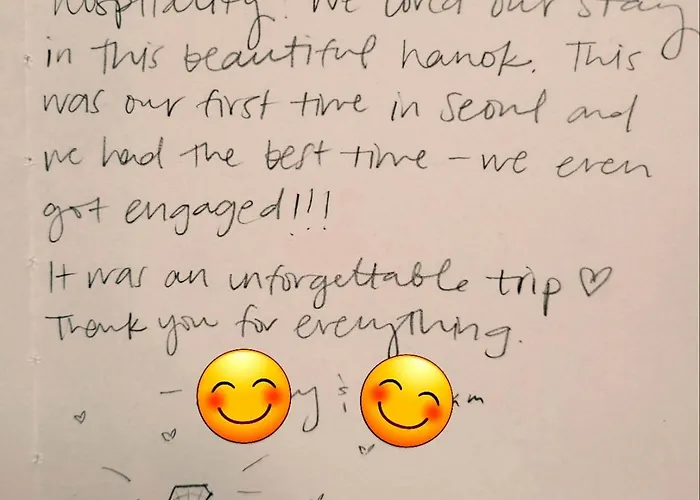 hospitality! We loved our stay
in this beautiful hanok. This
was our first time in Seoul and
we had the best time - we even
got engaged!!!
It was an unforgettable trip ♡
Thank you for everything.